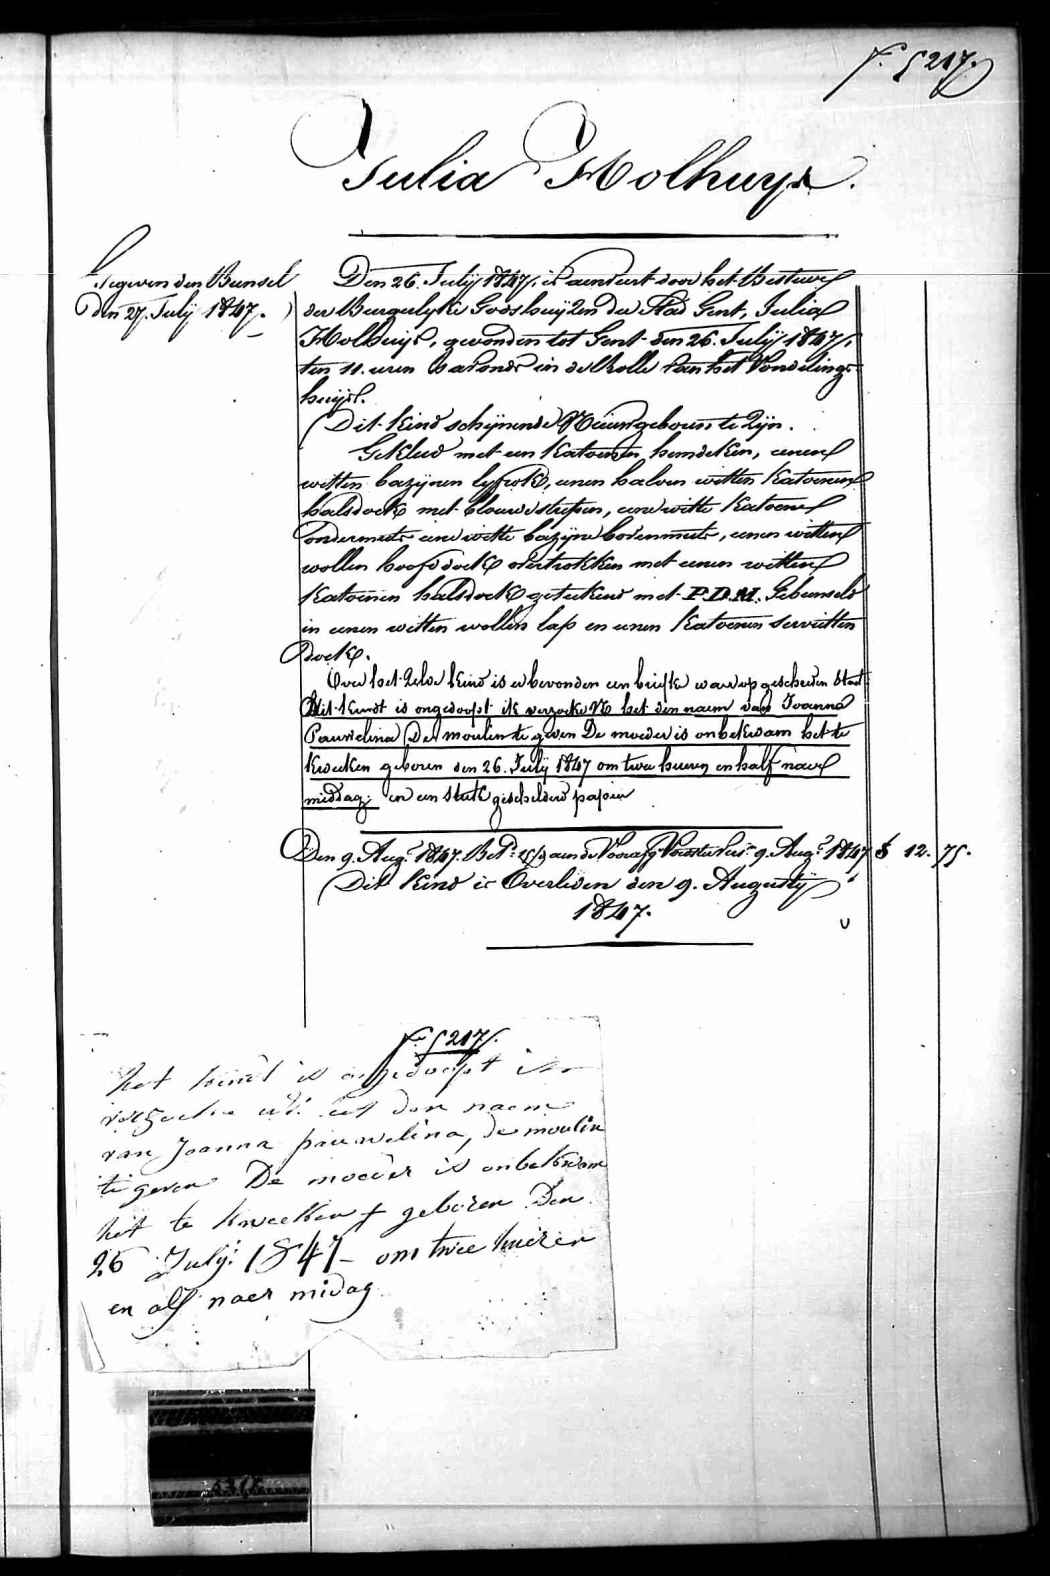 F. 5217.
Julia Holhuys.
Gegeven den Bunsel
den 27. July 1847.
Den 26. July 1847. is aenveert door het Bestuur
der Burgerlyke Godshuyzen der Stad Gent, Julia
Holhuys, gevonden tot Gent den 26. July 1847,
ten 11. uren 's avonds in de Rolle van het Vondelings-
huys.
Dit kind schijnende Nieuwgeboren te zijn.
Gekleed met een katoenen hemdeken, eenen
witten bazijnen lyfrok, eenen halven witten katoenen
halsdoek met blouwe strepen, eene witte katoene
ondermuts eene witte bazijne bovenmuts, eenen witten
wollen hoofddoek overtrokken met eenen witten
katoenen halsdoek geteekend met P.D.M. Gebunseld
in eenen witten wollen lap en eenen katoenen servietten
doek.
Over het zelve kind is er bevonden een briefke waer op geschreven staet
Dit kindt is ongedoopt ik verzoeke U het den naem van Joanna
Pauwelina De moulin te geven De moeder is onbekwam het te
kweeken geboren den 26. July 1847 om twee hueren en half naer
middag. en een stuk geschilderd papier
Den 9. Aug. 1847. Bet. aen de Voorzg 9. Aug. 1847 12. 75.
Dit kind is Overleden den 9. Augusty
1847.
F. 5217.
het kindt is ongedoopt ik
verzoeke u het den naem
van Joanna pauwelina, de moulin
te geven De moeder is onbekwam
het te kweeken geboren Den
26 July 1847 om twee hueren
en alf naer midag